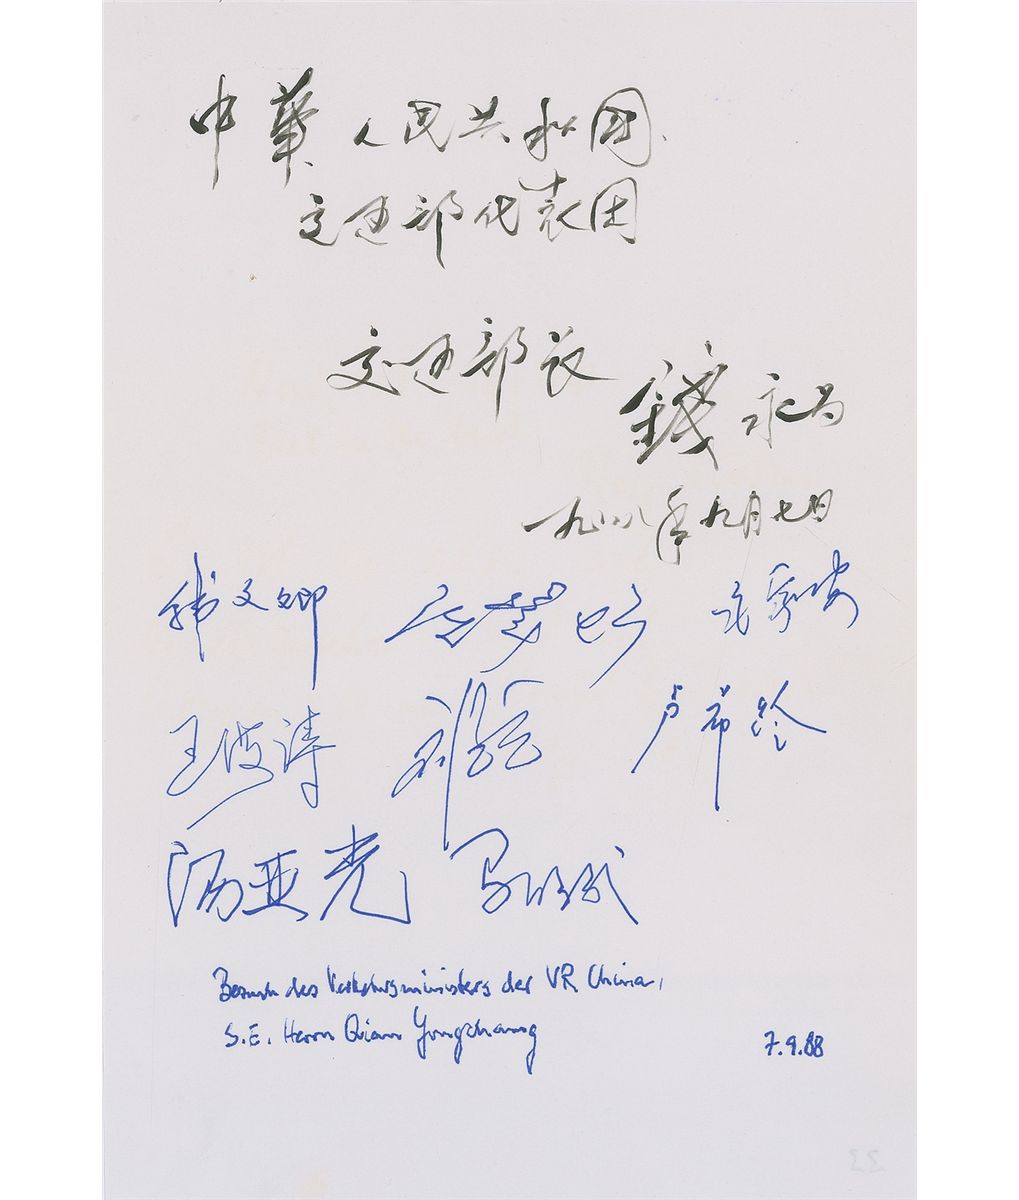 中華人民共和國
交通部代表团
交通部长 錢永昌
一九八八年九月七日
韩文卿
王波涛 卢希龄
汤亚光
Besuch des Verkehrsministers der VR China,
S.E. Herrn Qian Yongchang 7.9.88
33